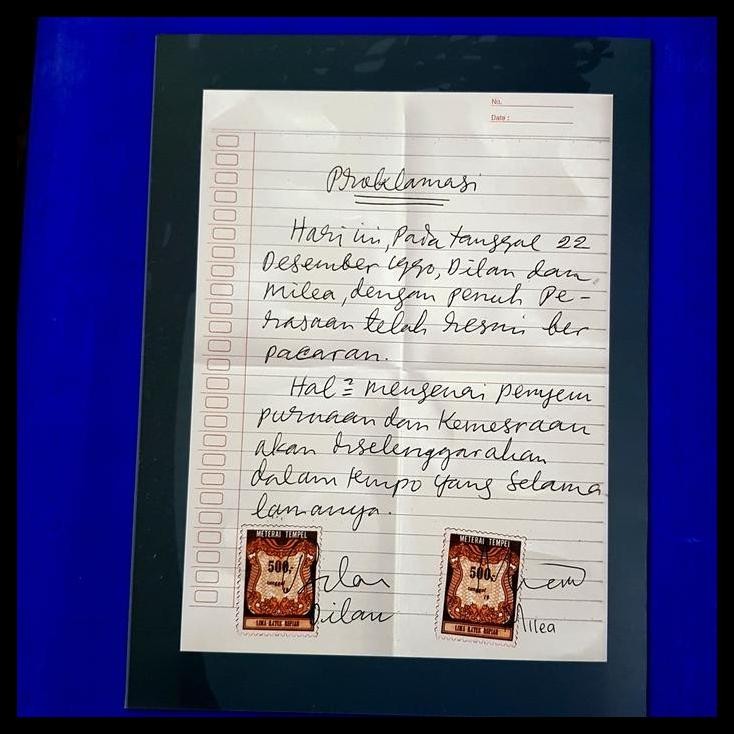 No.
Date :
Proklamasi
Hari ini, Pada tanggal 22
Desember 1990, Dilan dan
Milea, dengan penuh Pe-
rasaan telah resmi ber
pacaran.
Hal ² mengenai penyem
purnaan dan Kemesraan
akan diselenggarakan
dalam tempo yang Selama
lamanya.
METERAI TEMPEL METERAI TEMPEL
500,- 500,-
tanggal tanggal
19 19
LIMA RATUS RUPIAH LIMA RATUS RUPIAH
Dilan Milea